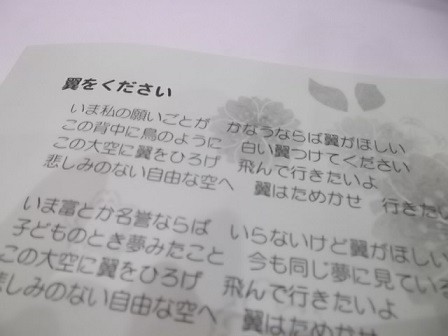 翼をください
いま私の願いごとが かなうならば翼がほしい
この背中に鳥のように 白い翼つけてください
この大空に翼をひろげ 飛んで行きたいよ
悲しみのない自由な空へ 翼はためかせ 行きた
いま富とか名誉ならば いらないけど翼がほしい
子どものとき夢みたこと 今も同じ夢に見ている
この大空に翼をひろげ 飛んで行きたいよ
悲しみのない自由な空へ 翼はためかせ